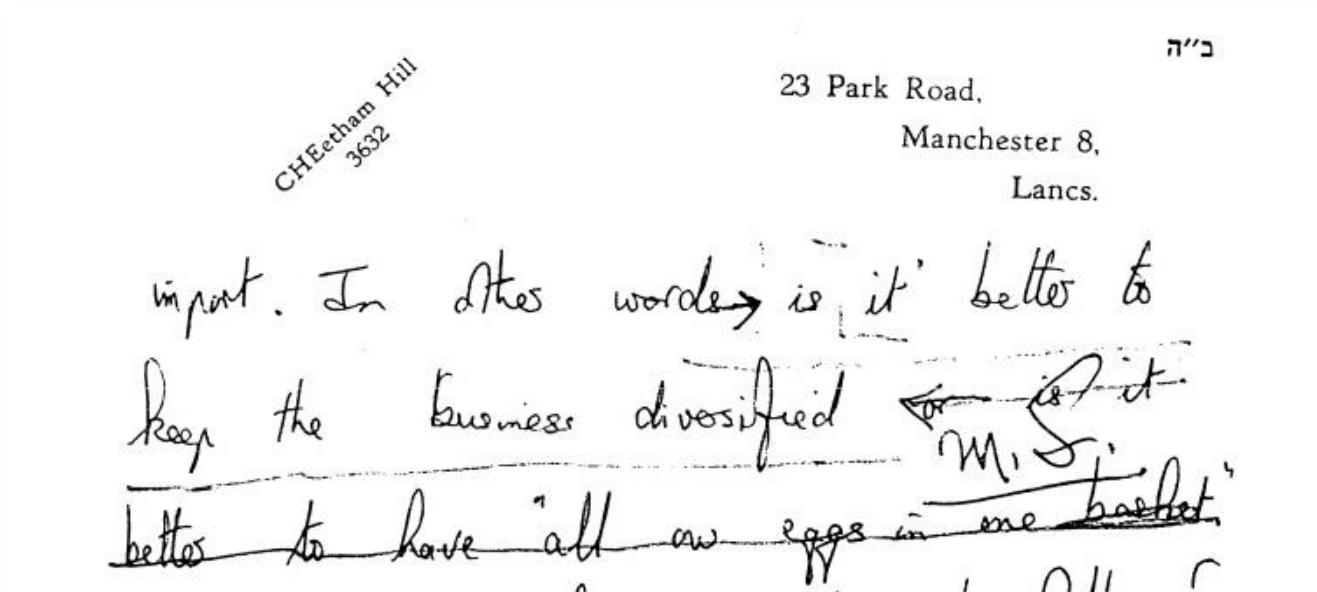 ב״ה
CHEetham Hill
3632
23 Park Road,
Manchester 8,
Lancs.
import. In other words → is it better to
keep the business diversified ← or is it
M. S.
better to have "all our eggs in one basket"